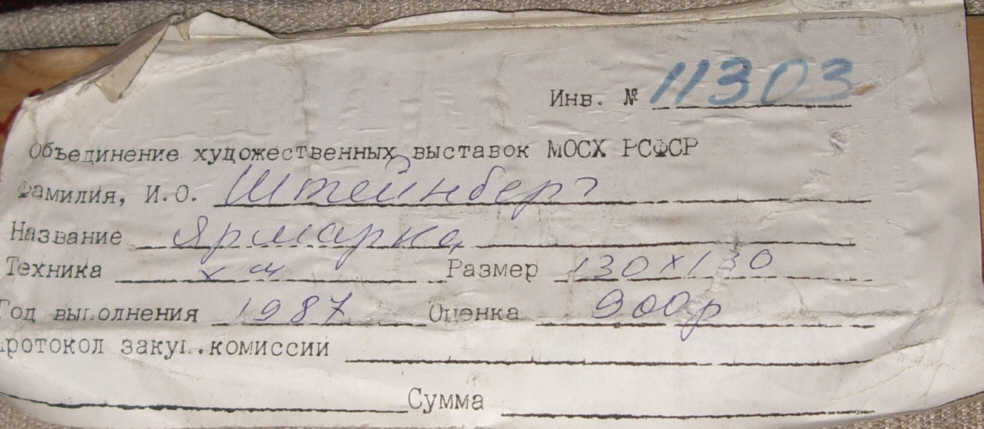 Инв. № 11303
Объединение художественных выставок МОСХ РСФСР
Фамилия, И.О. Штейнберг
Название Ярмарка
Техника х м Размер 130х130
Год выполнения 1987 Оценка 900р
протокол закуп.комиссии
Сумма